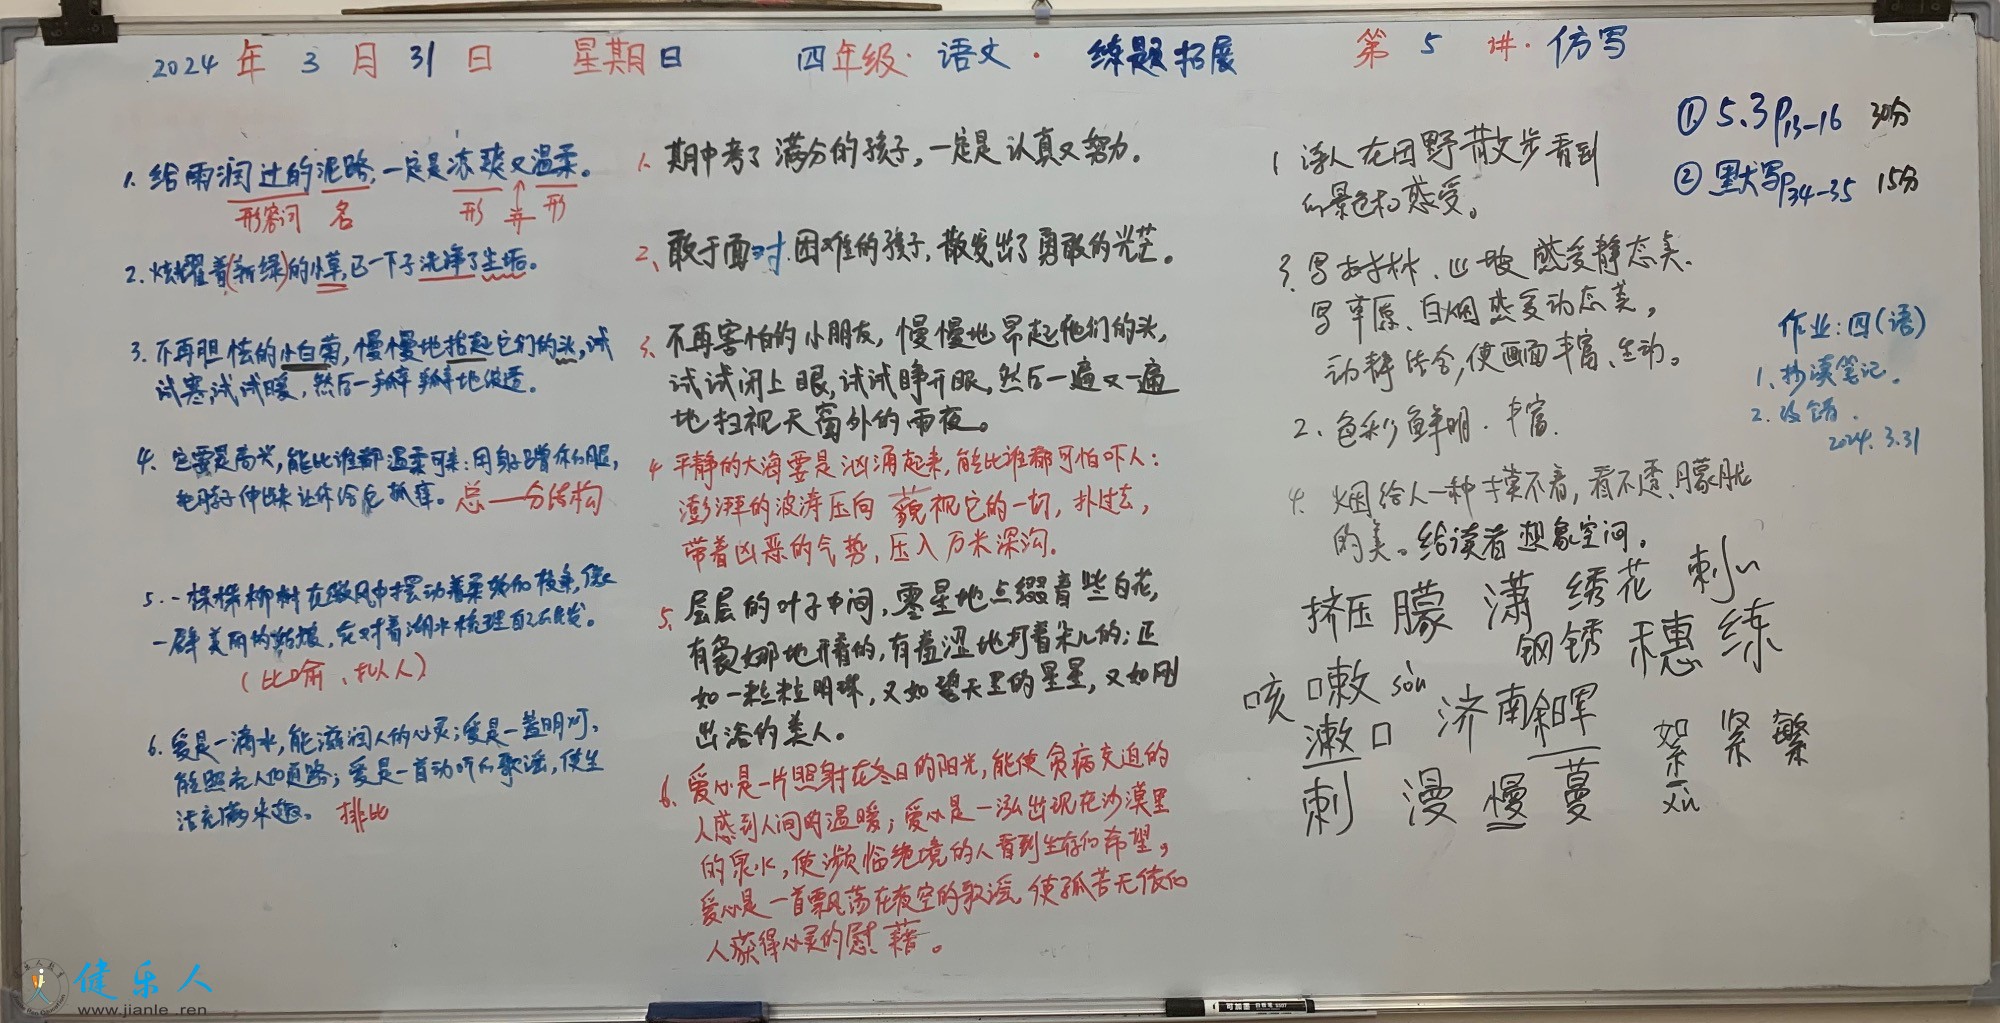 2024年3月31日 星期日 四年级·语文·练题拓展 第5讲·仿写
1.给雨润过的泥路,一定是凉爽又温柔。
形容词 名 形 并 形
2.炫耀着(新绿)的小草,已一下子洗净了尘垢。
3.不再胆怯的小白菊,慢慢地抬起它们的头,试
试寒,试试暖,然后一瓣瓣地绽透。
4.它要是高兴,能比谁都温柔可亲:用身子蹭你的腿,
把脖子伸出来让你给它抓痒。总——分结构
5.一棵棵柳树在微风中摆动着柔软的枝条,像
一群美丽的姑娘,在对着湖水梳理自己的长发。
(比喻、拟人)
6.爱是一滴水,能滋润人的心灵;爱是一盏明灯,
能照亮人的道路;爱是一首动听的歌谣,使生
活充满乐趣。 排比
1.期中考了满分的孩子,一定是认真又努力。
2、敢于面对困难的孩子,散发出了勇敢的光芒。
3、不再害怕的小朋友,慢慢地昂起他们的头,
试试闭上眼,试试睁开眼,然后一遍又一遍
地扫视天窗外的雨夜。
4 平静的大海要是汹涌起来,能比谁都可怕吓人:
澎湃的波涛压向藐视它的一切,扑过去,
带着凶恶的气势,压入万米深沟.
5、层层的叶子中间,零星地点缀着些白花,
有袅娜地开着的,有羞涩地打着朵儿的;正
如一粒粒明珠,又如碧天里的星星,又如刚
出浴的美人。
6、爱心是一片照射在冬日的阳光,能使贫病交迫的
人感到人间的温暖;爱心是一泓出现在沙漠里
的泉水,使濒临绝境的人看到生存的希望,
爱心是一首飘荡在夜空的歌谣,使孤苦无依的
人获得心灵的慰藉。
1 诗人在田野散步看到
的景色和感受。
3.写树林、山坡感受静态美.
写草原、白烟感受动态美,
动静结合,使画面丰富、生动。
2、色彩鲜明.丰富.
4.烟给人一种摸不着,看不透、朦胧
的美。给读者想象空间.
挤压 朦 潇 绣花 刺
钢锈 穗 练
咳嗽 sòu
漱口 济南 锦晖 絮 紧 繁
刺 漫 慢 蔓 xù
① 5.3 P13-16 30分
② 默写P34-35 15分
作业:四(语)
1、抄读笔记.
2.改错.
2024.3.31
健乐人
www.jianle.ren
可加墨